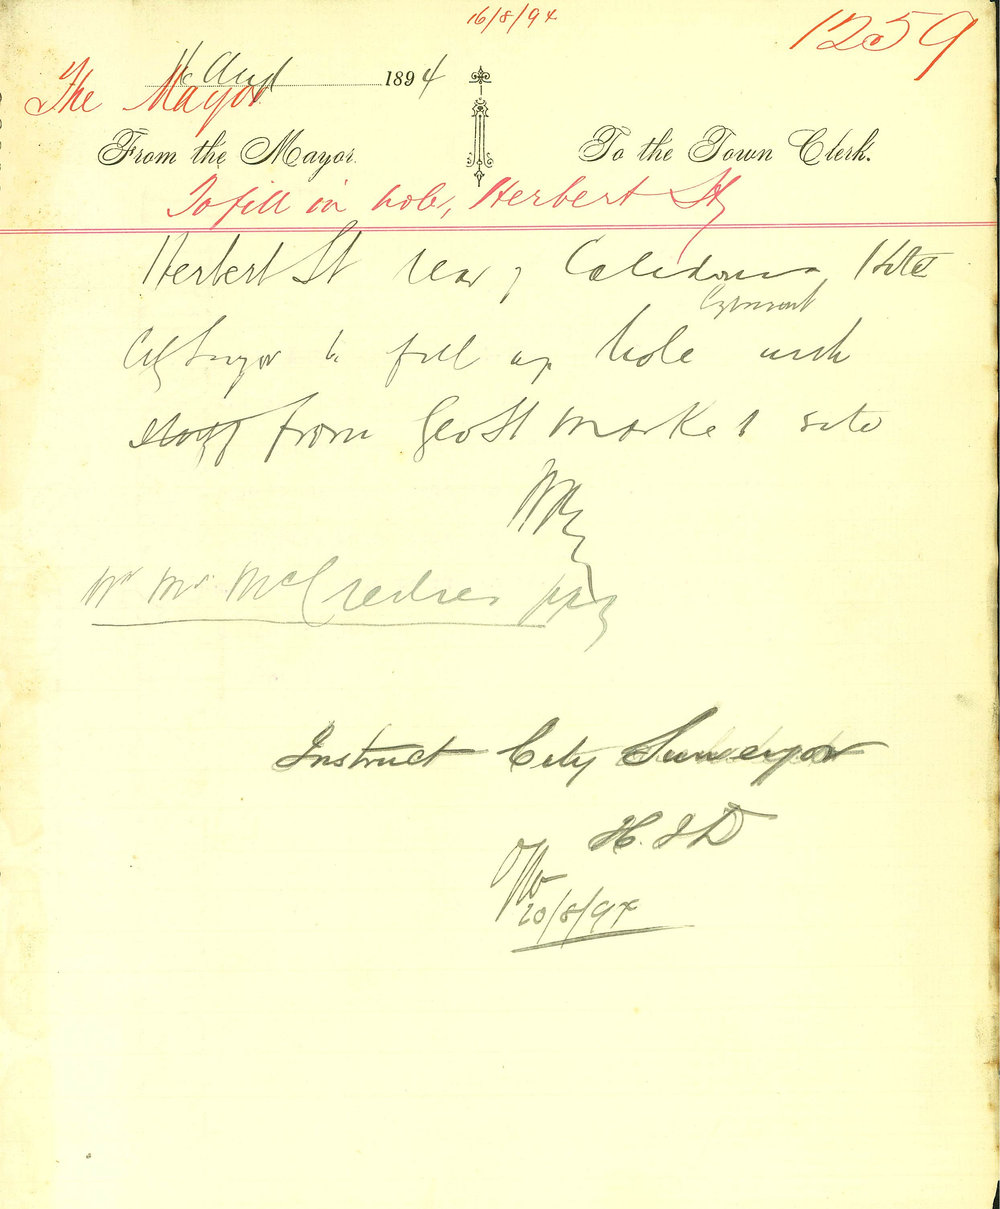 16/8/94
1259
16 Aug 1894
The Mayor
From the Mayor. To the Town Clerk.
To fill in hole, Herbert St
Herbert St rear of Caledonia Hotel
City Surveyor to fill up hole with
stuff from Geo St market site
Mr McCredie
Instruct City Surveyor
H. J D
20/8/94